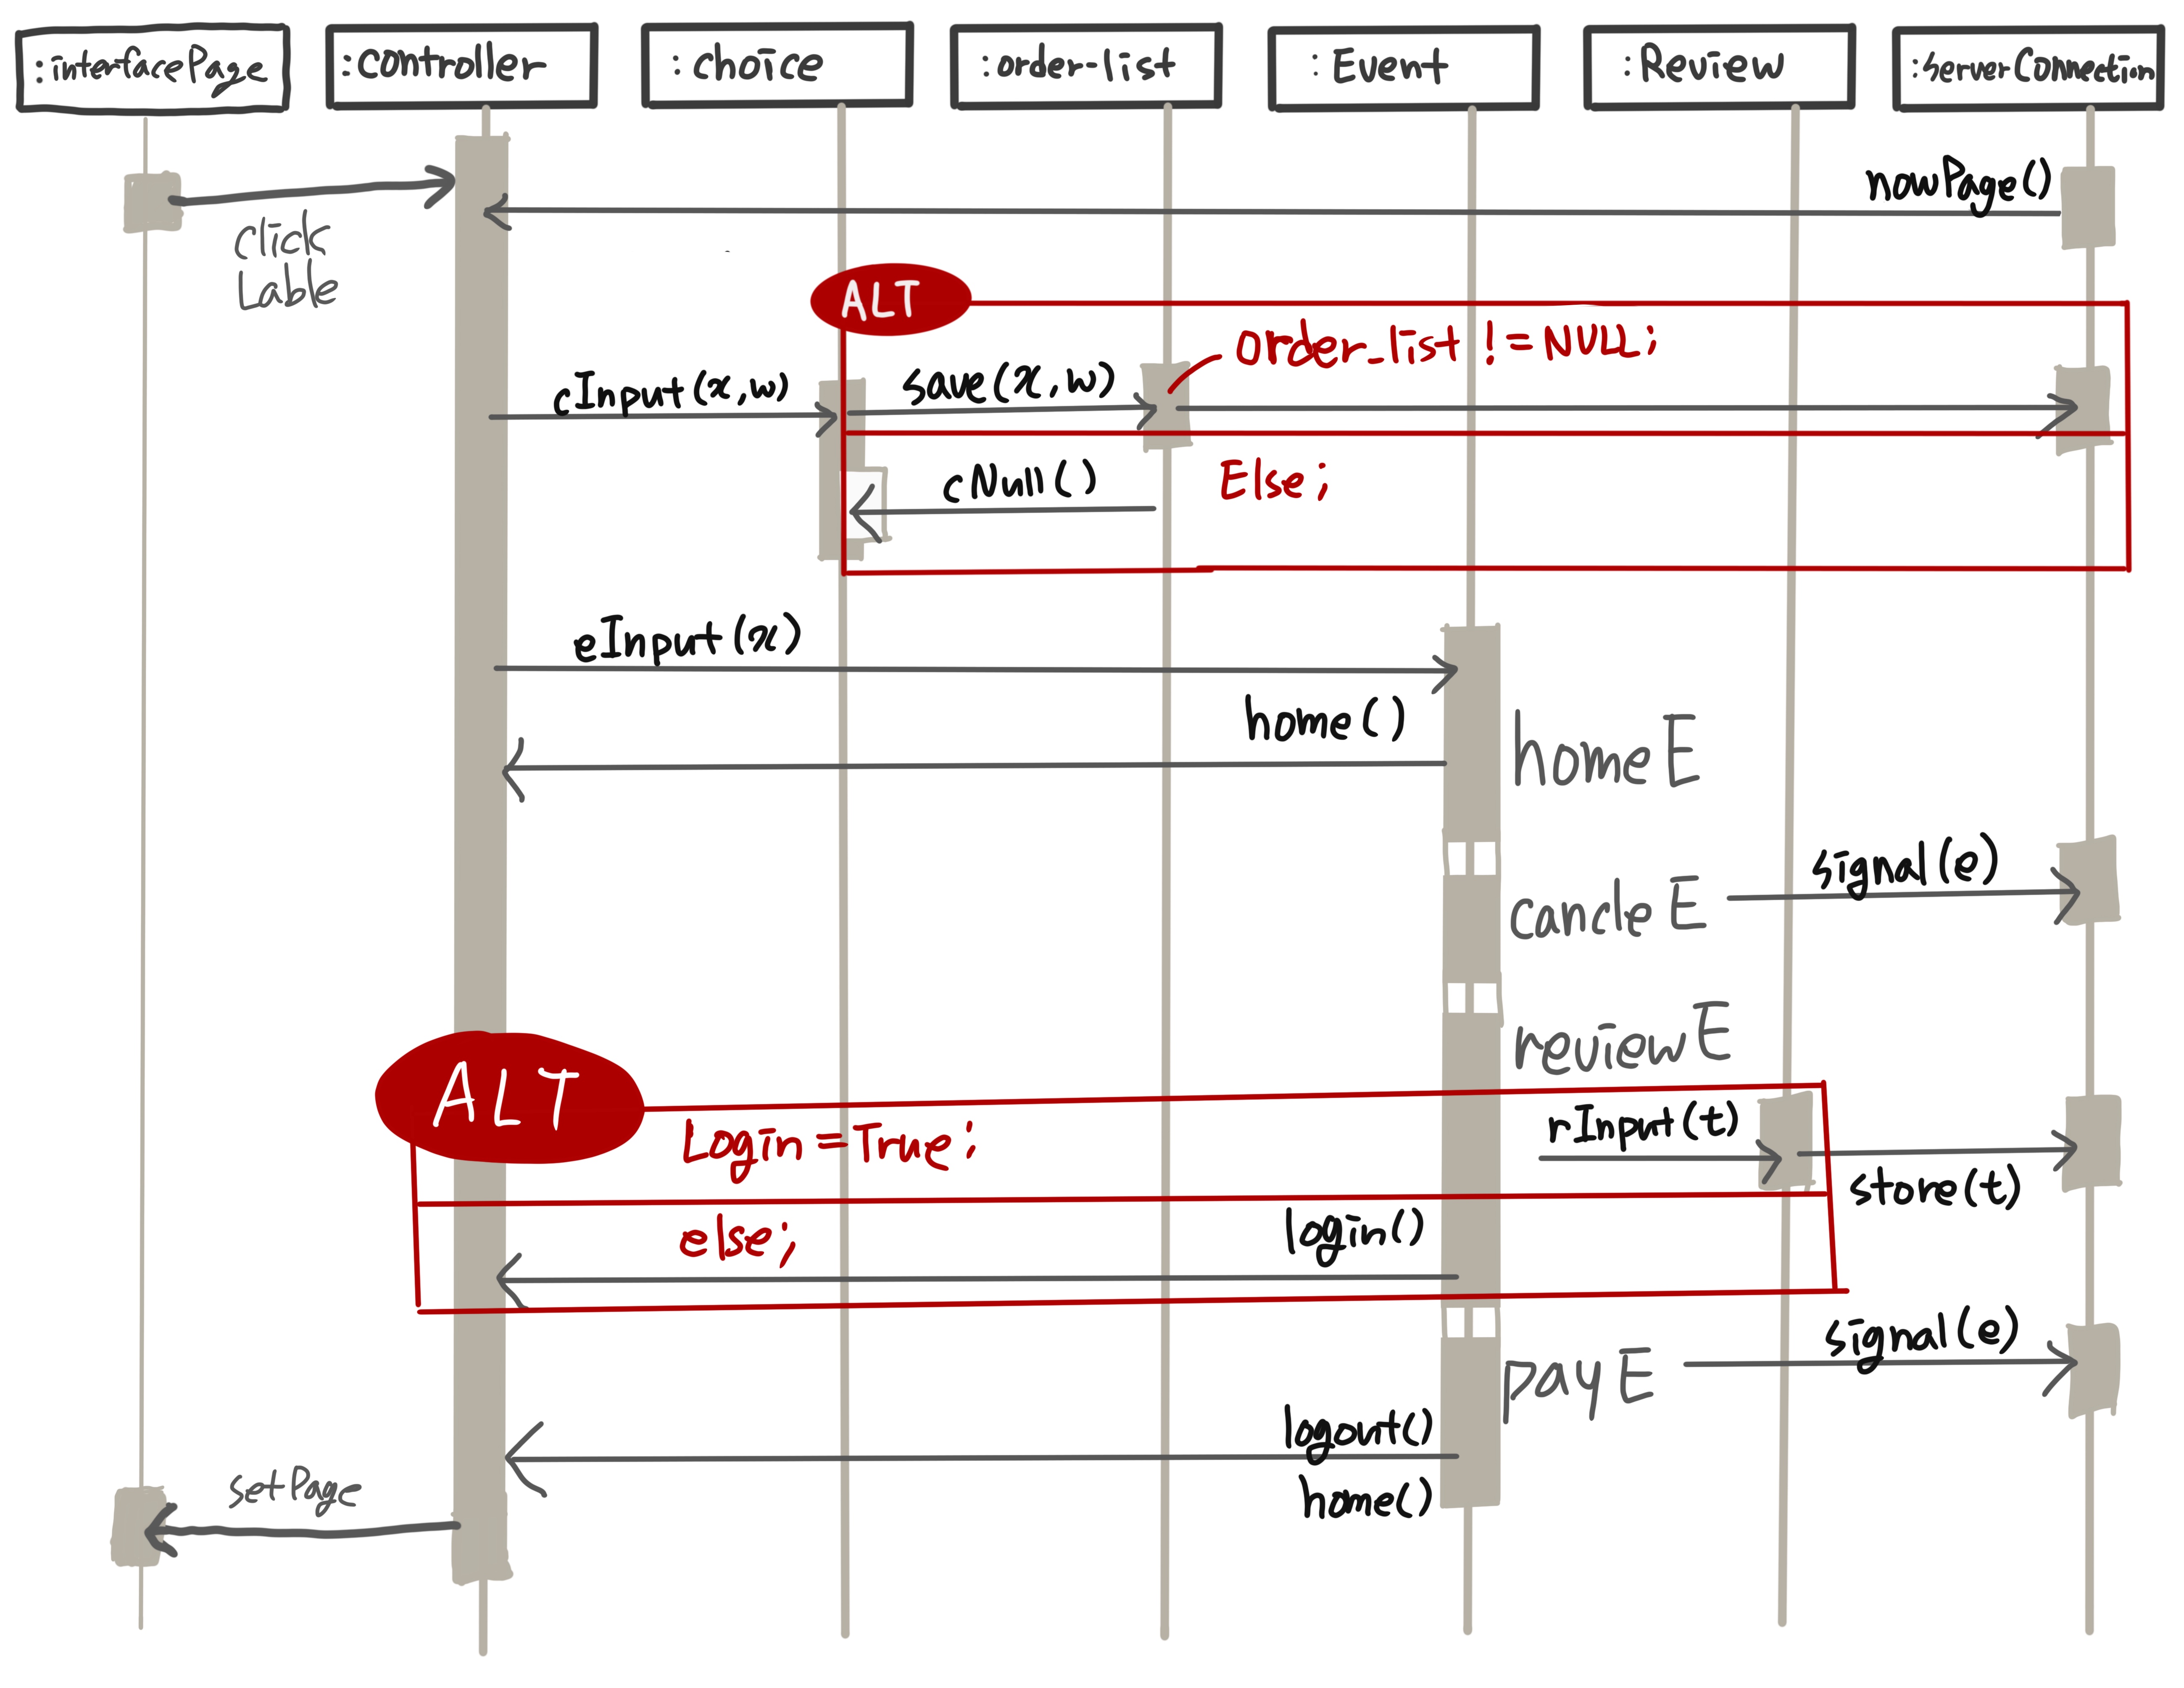 :interfacePage
:controller
:choice
:order-list
:Event
:Review
:ServerConnection
nowPage()
click
Lable
ALT
order_list != NULL;
cInput(x,w)
save(x,w)
cNull()
Else;
eInput(x)
home()
homeE
signal(e)
cancleE
reviewE
ALT
Login = True;
rInput(t)
store(t)
else;
login()
signal(e)
payE
logout()
home()
setPage